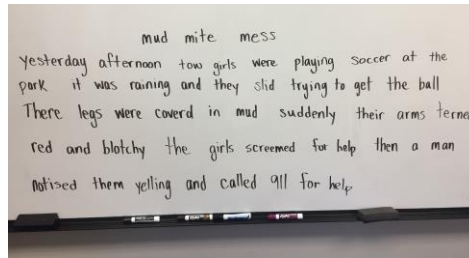 mud mite mess
Yesterday afternoon tow girls were playing soccer at the
park it was raining and they slid trying to get the ball
There legs were coverd in mud suddenly their arms terne
red and blotchy the girls screemed for help then a man
notised them yelling and called 911 for help